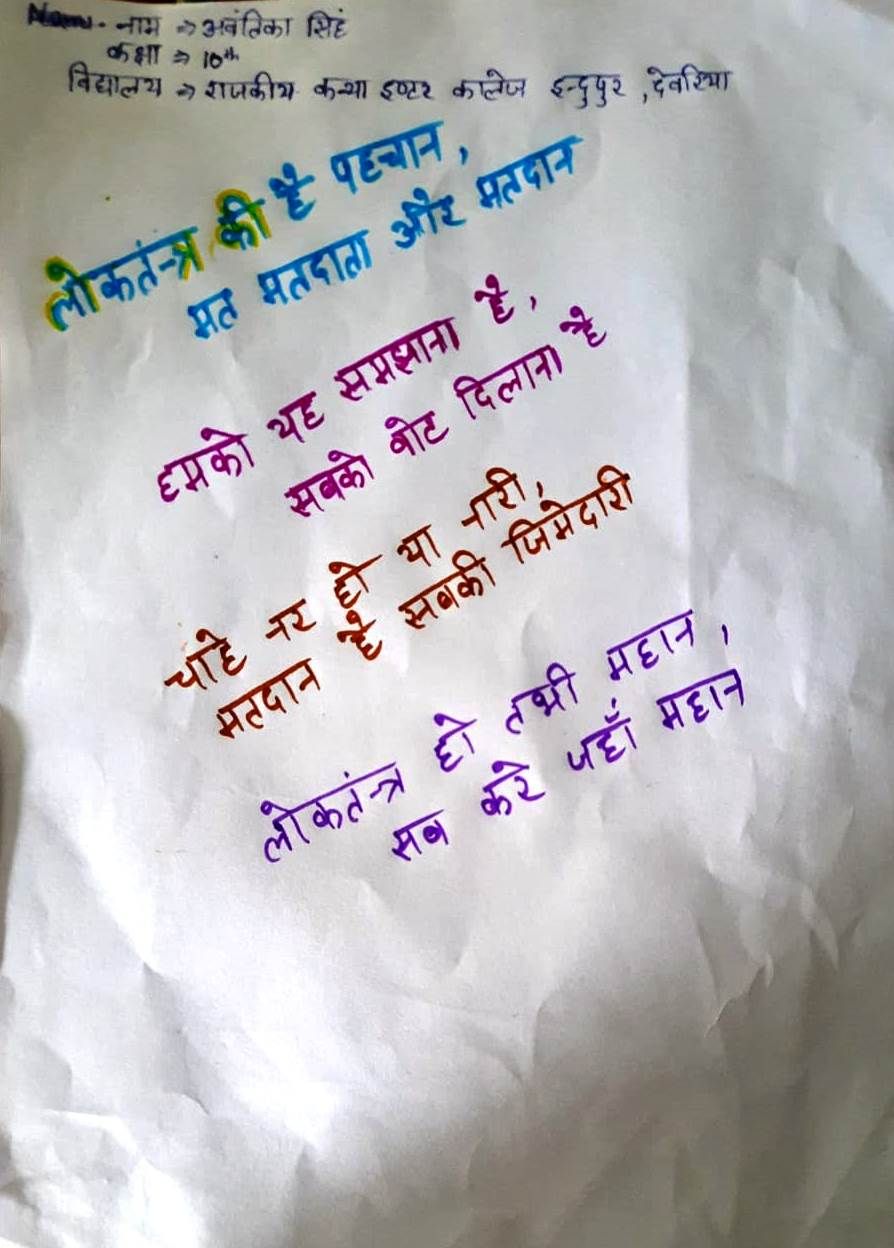 नाम ⇒ अवंतिका सिहं
कक्षा ⇒ 10th
विद्यालय ⇒ राजकीय कन्या इण्टर कालेज इन्दुपुर ,देवरिया
लोकतंन्त्र की है पहचान,
मत मतदाता और मतदान
हमको यह समझाना है,
सबको वोट दिलाना है
चाहे नर हो या नारी,
मतदान है सबकी जिमेदारी
लोकतंन्त्र हो तभी महान,
सब करे जहाँ महान